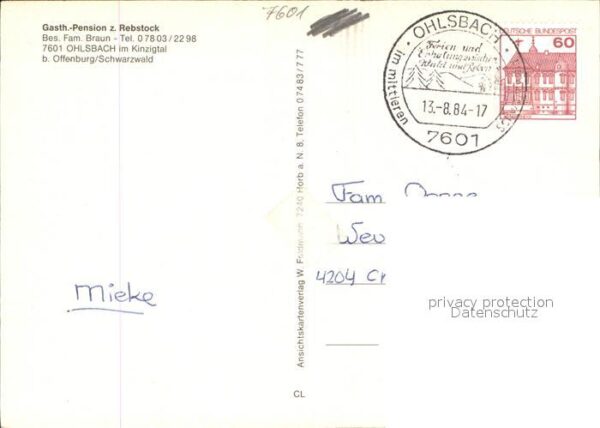 7601
Gasth.-Pension z. Rebstock
Bes. Fam. Braun - Tel. 0 78 03 / 22 98
7601 OHLSBACH im Kinzigtal
b. Offenburg/Schwarzwald
OHLSBACH
Ferien und
Wald und Reben
im mittleren
13.-8.84-17
7601
DEUTSCHE BUNDESPOST
60
Ansichtskartenverlag W. Feldmann 7240 Horb a. N. 8, Telefon 0 74 83 / 7 77
Fam
Wev
4204
Mieke
privacy protection
Datenschutz
CL